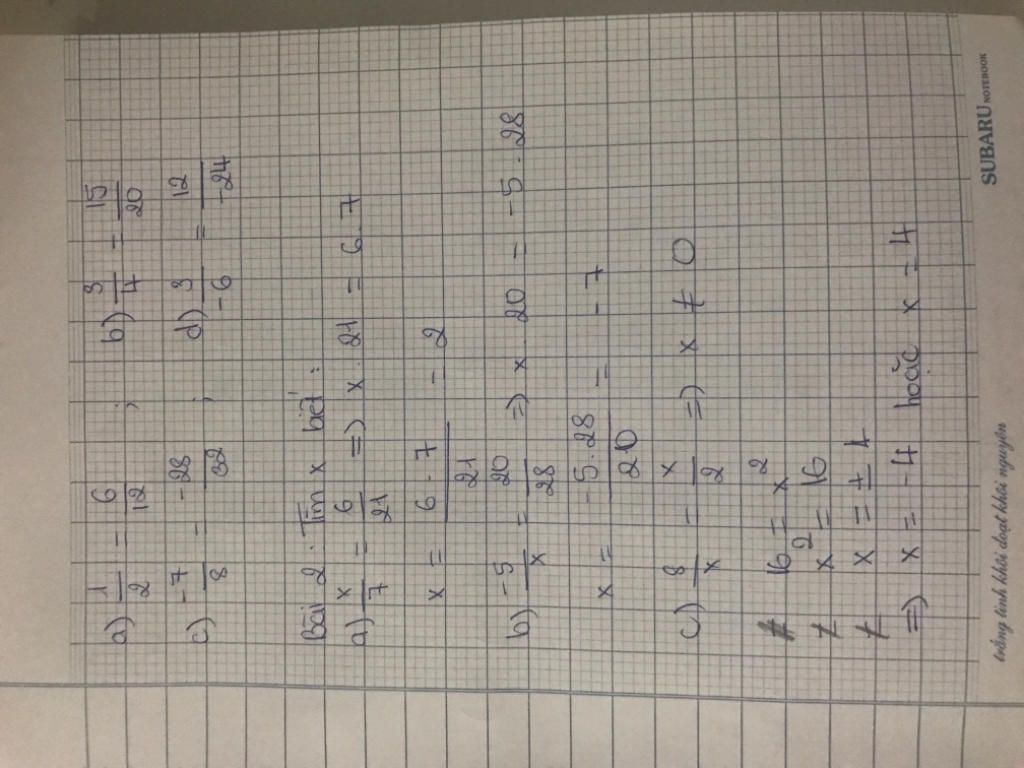 a) 1/2 = 6/12 ; b) 3/4 = 15/20
c) -7/8 = -28/32 ; d) 3/-6 = 12/-24
Bài 2. Tìm x biết:
a) x/7 = 6/21 => x . 21 = 6.7
x = 6.7/21 = 2
b) -5/x = 20/28 => x . 20 = -5.28
x = -5.28/20 = -7
c) 8/x = x/2 => x ≠ 0
16 = x²
x² = 16
x = ±4
=> x = -4 hoặc x = 4
tưởng tính khôi đoạt khôi nguyên
SUBARU NOTEBOOK